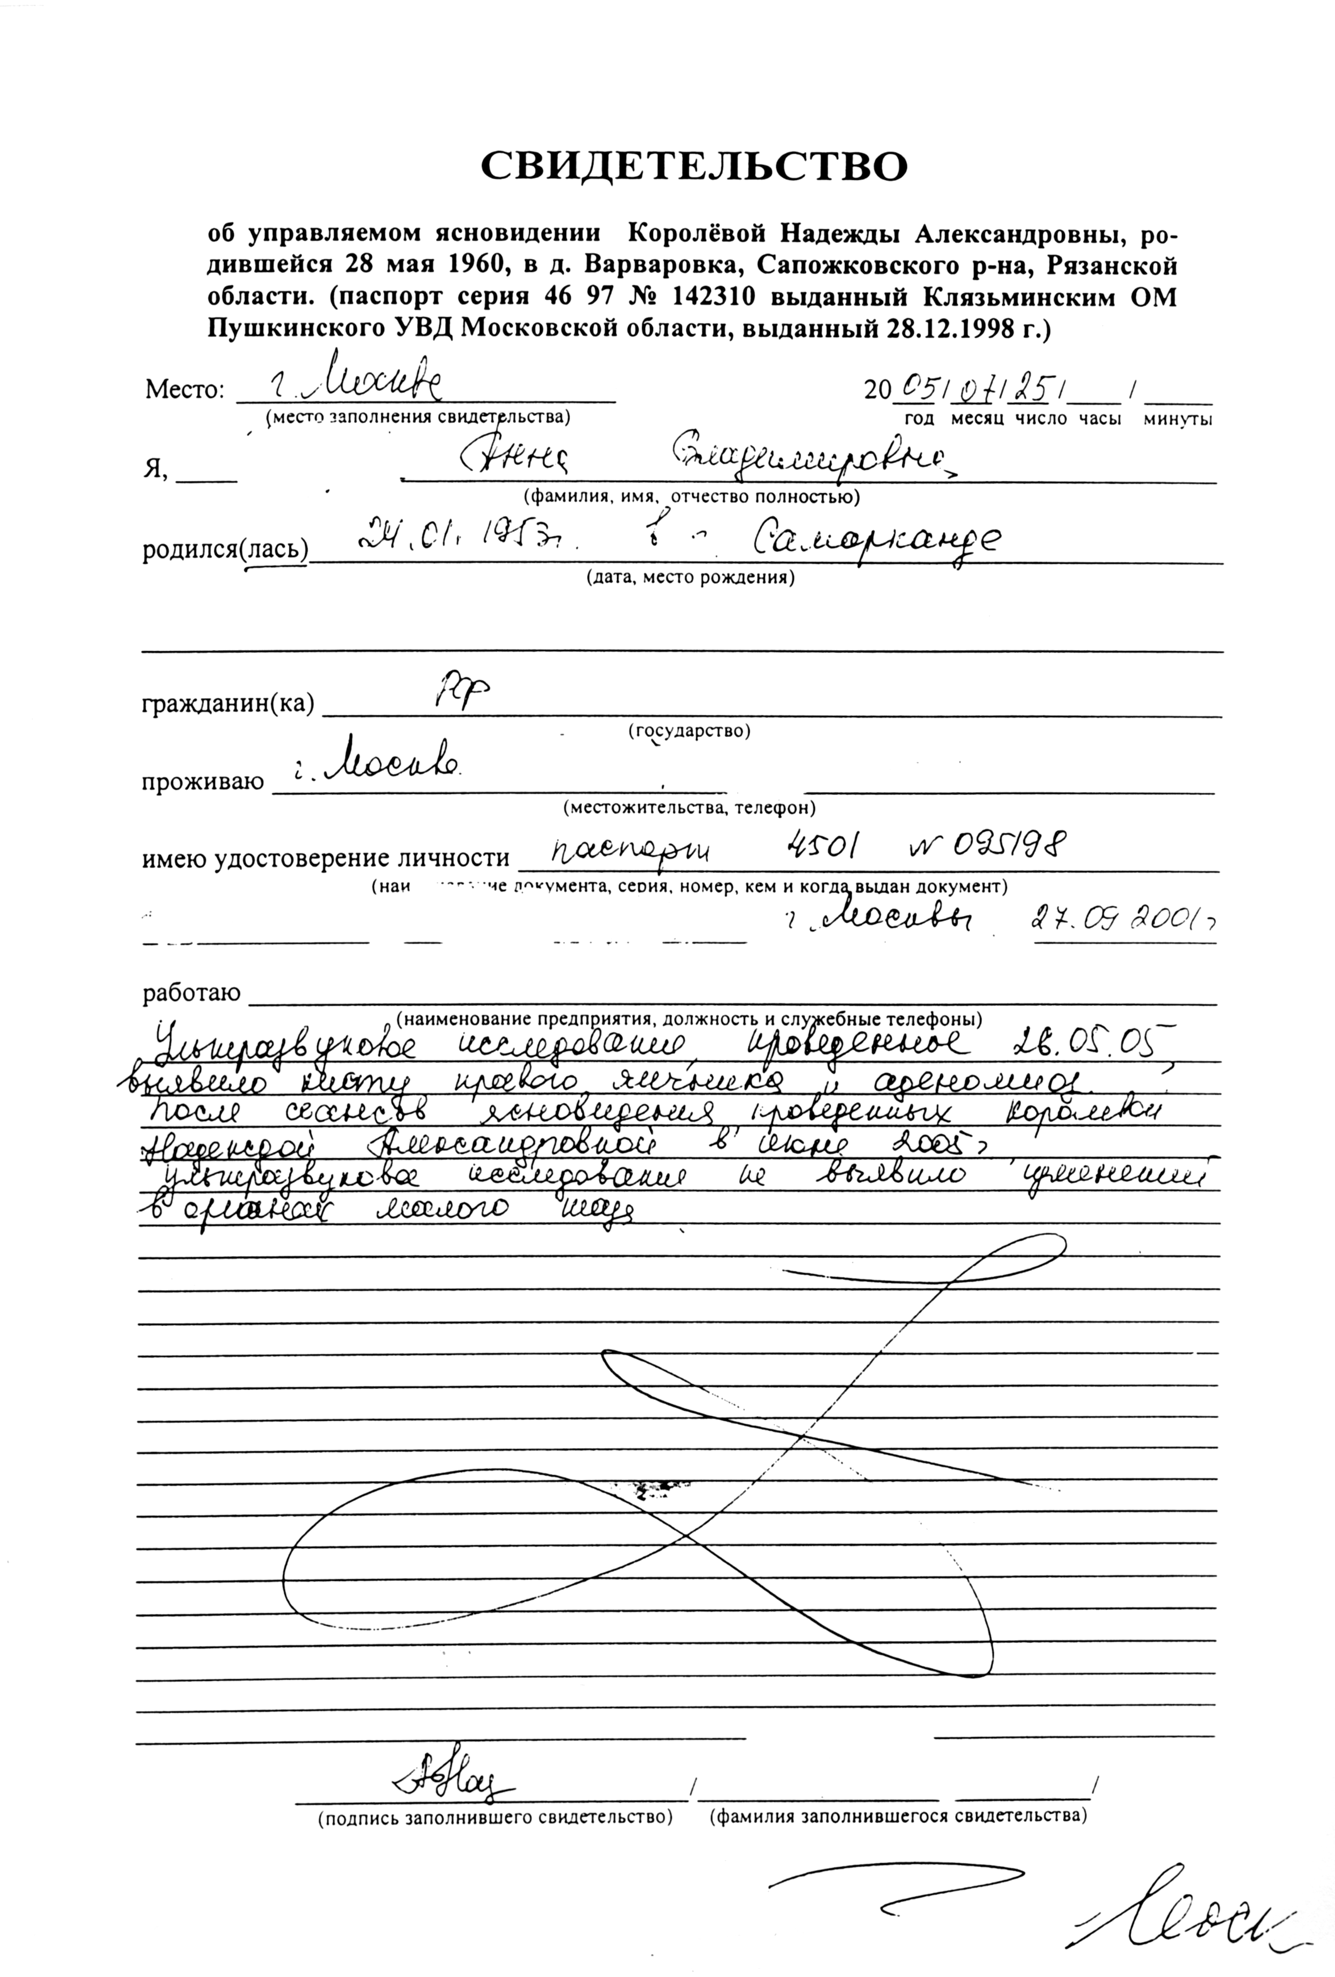 СВИДЕТЕЛЬСТВО
об управляемом ясновидении Королёвой Надежды Александровны, ро-
дившейся 28 мая 1960, в д. Варваровка, Сапожковского р-на, Рязанской
области. (паспорт серия 46 97 № 142310 выданный Клязьминским ОМ
Пушкинского УВД Московской области, выданный 28.12.1998 г.)
Место: г. Москве 20 05/07/25/ /
(место заполнения свидетельства) год месяц число часы минуты
Я, Анна Владимировна,
(фамилия, имя, отчество полностью)
родился(лась) 24.01.1953г. в Самарканде
(дата, место рождения)
гражданин(ка) РФ
(государство)
проживаю г. Москва
(местожительства, телефон)
имею удостоверение личности паспорт 4501 № 095198
(наи ие документа, серия, номер, кем и когда выдан документ)
г. Москвы 27.09 2001г
работаю
(наименование предприятия, должность и служебные телефоны)
Ультразвуковое исследование, проведенное 26.05.05
выявило кисту правого яичника и аденомиоз.
После сеансов ясновидения проведенных Королевой
Надеждой Александровной в июне 2005г
ультразвуковое исследование не выявило изменений
в органах малого таза
/ /
(подпись заполнившего свидетельство) (фамилия заполнившегося свидетельства)